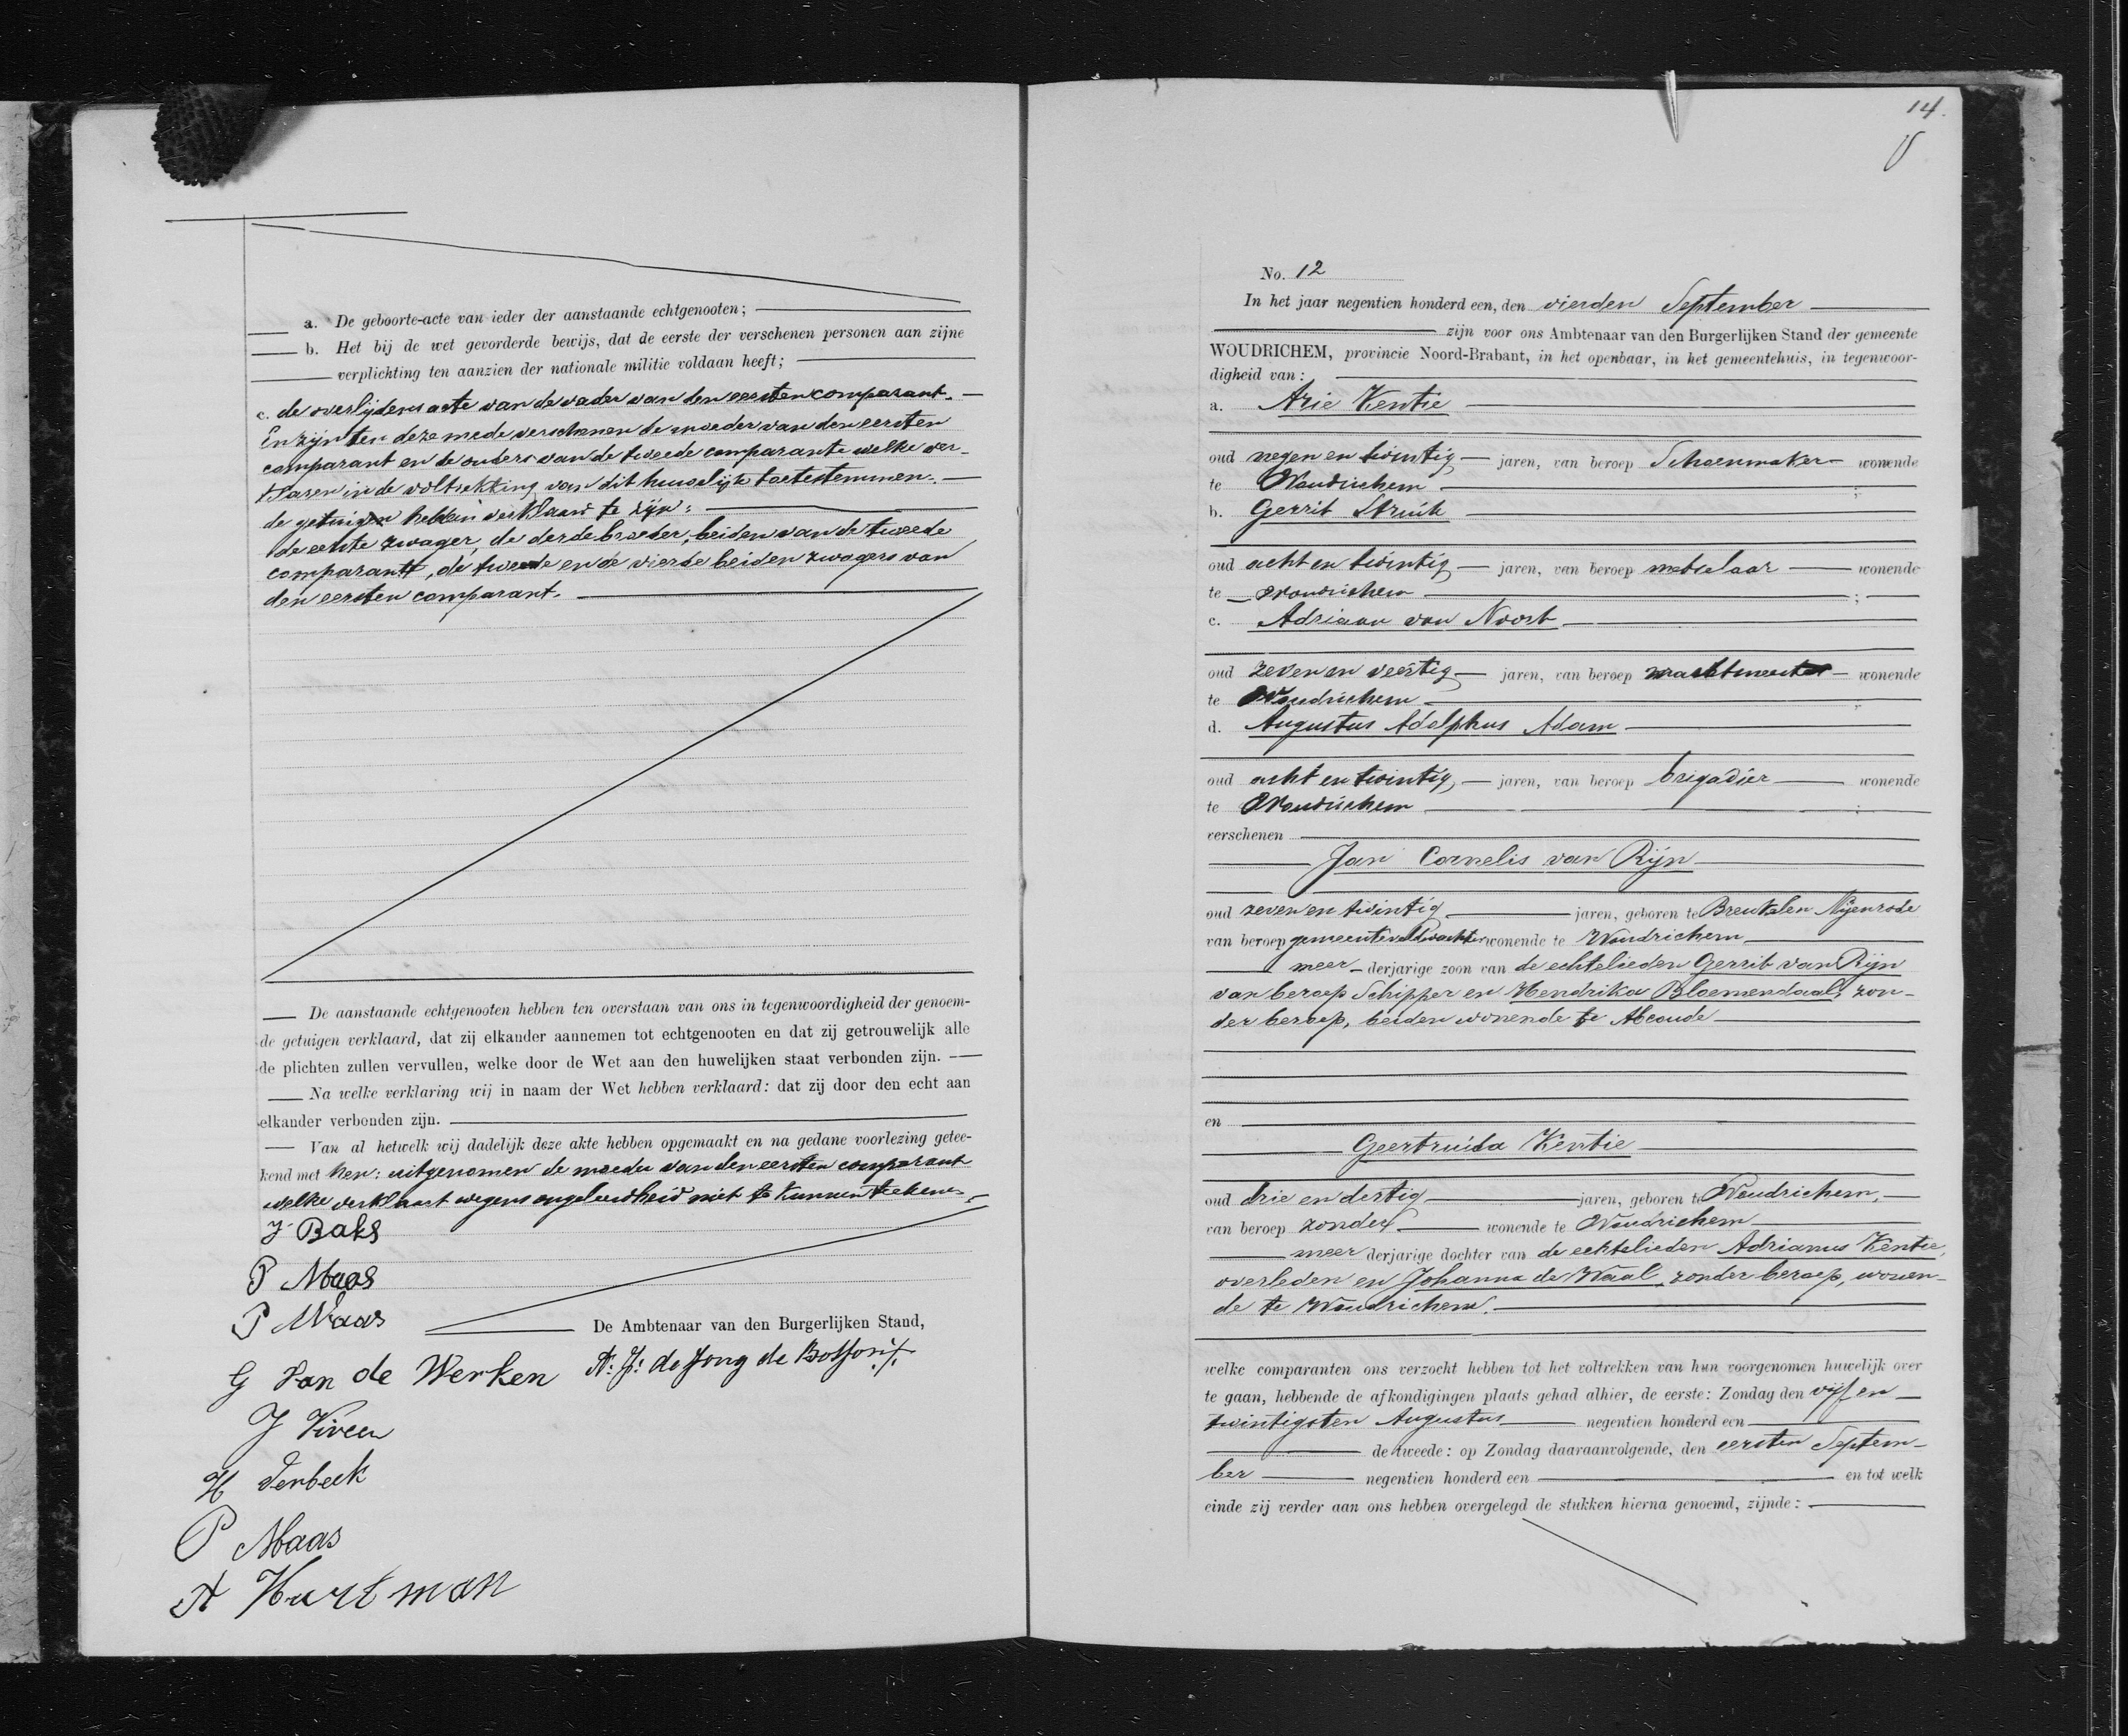 a. De geboorte-acte van ieder der aanstaande echtgenooten;
b. Het bij de wet gevorderde bewijs, dat de eerste der verschenen personen aan zijne
verplichting ten aanzien der nationale militie voldaan heeft;
c. de overlijdens acte van de vader van den eersten comparant.
En zijn ten deze mede verschenen de moeder van den eersten
comparant en de ouders van de tweede comparante welke ver-
klaren in de voltrekking van dit huwelijk toetestemmen.
de getuigen hebben verklaard te zijn:
de eerste zwager, de derde broeder, beiden van de tweede
comparant, de tweede en de vierde beiden zwagers van
den eersten comparant.
De aanstaande echtgenooten hebben ten overstaan van ons in tegenwoordigheid der genoem-
de getuigen verklaard, dat zij elkander aannemen tot echtgenooten en dat zij getrouwelijk alle
de plichten zullen vervullen, welke door de Wet aan den huwelijken staat verbonden zijn.
Na welke verklaring wij in naam der Wet hebben verklaard: dat zij door den echt aan
elkander verbonden zijn.
Van al hetwelk wij dadelijk deze akte hebben opgemaakt en na gedane voorlezing getee-
kend met hen: uitgenomen de moeder van den eersten comparant
welke verklaart wegens ongeleerdheid niet te kunnen teekenen.
J Baks
P Maas
P Maas
De Ambtenaar van den Burgerlijken Stand,
G Van de Werken
A. J. de Jong de
J Viveen
H Verbeek
P Maas
A Hartman
14.
No. 12
In het jaar negentien honderd een, den vierden September
zijn voor ons Ambtenaar van den Burgerlijken Stand der gemeente
WOUDRICHEM, provincie Noord-Brabant, in het openbaar, in het gemeentehuis, in tegenwoor-
digheid van:
a. Arie Kentie
oud negen en twintig jaren, van beroep Schoenmaker wonende
te Woudrichem ;
b. Gerrit Struik
oud acht en twintig jaren, van beroep metselaar wonende
te Woudrichem ;
c. Adriaan van Noort
oud zeven en veertig jaren, van beroep wonende
te Woudrichem ;
d. Augustus Adolphus Adam
oud acht en twintig jaren, van beroep brigadier wonende
te Woudrichem ;
verschenen
Jan Cornelis van Rijn
oud zeven en twintig jaren, geboren te Breukelen Nijenrode
van beroep gemeenteveldwachter wonende te Woudrichem
meer-derjarige zoon van de echtelieden Gerrit van Rijn
van beroep Schipper en Hendrika Bloemendaal, zon-
der beroep, beiden wonende te Abcoude
en
Geertruida Kentie
oud drie en dertig jaren, geboren te Woudrichem,
van beroep zonder wonende te Woudrichem
meer derjarige dochter van de echtelieden Adrianus Kentie,
overleden en Johanna de Waal, zonder beroep, wonen-
de te Woudrichem.
welke comparanten ons verzocht hebben tot het voltrekken van hun voorgenomen huwelijk over
te gaan, hebbende de afkondigingen plaats gehad alhier, de eerste: Zondag den vijf en
twintigsten Augustus negentien honderd een
de tweede: op Zondag daaraanvolgende, den eersten Septem-
ber negentien honderd een en tot welk
einde zij verder aan ons hebben overgelegd de stukken hierna genoemd, zijnde: